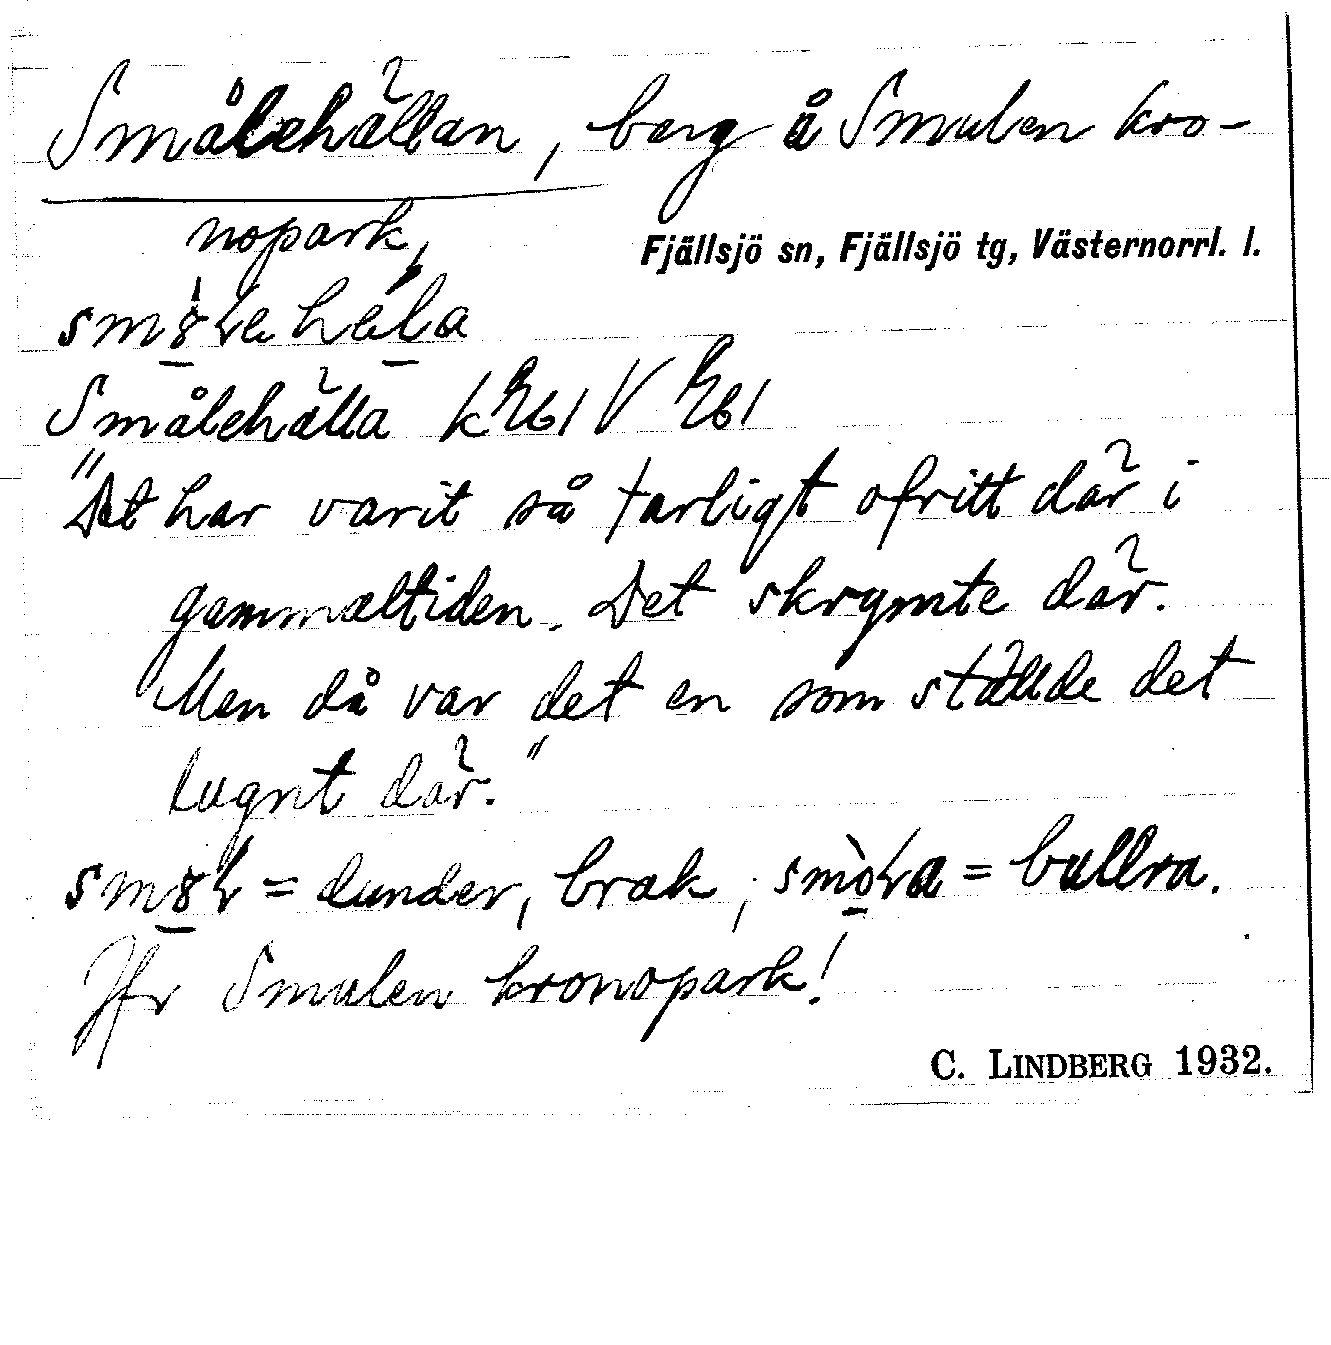 Smålehällan, berg å Smulen kro-
nopark,
Fjällsjö sn, Fjällsjö tg, Västernorrl. l.
Smålehälla
"Det har varit så farligt ofritt där i
gammaltiden. Det skrymte där.
Men då var det en som ställde det
lugnt där."
= dunder, brak, = bullra.
Jfr Smulen kronopark!
C. LINDBERG 1932.